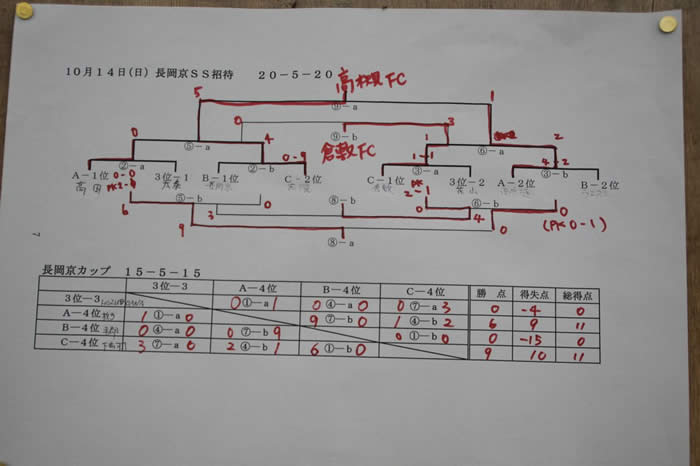 10月14日(日) 長岡京SS招待 20-5-20 高槻FC
5 1
⑨-a
0 3
0 4 ⑤-a ⑨-b 1 ⑥-a 2
倉敷FC
②-a 0-9 1-1 4-2
②-b ③-a ③-b
A-1位 0-0 3位-1 B-1位 C-2位 C-1位 PK 3位-2 A-2位 B-2位
PK2-
2-1
⑤-b ⑧-b ⑥-b
6 0 3 4 0 0
(PK 0-1)
9 0
⑧-a
7
長岡京カップ 15-5-15
3位-3 A-4位 B-4位 C-4位 勝 点 得失点 総得点
3位-3 0 ①-a 1 0 ④-a 0 0 ⑦-a 3 0 -4 0
A-4位 1 ①-a 0 9 ⑦-b 0 1 ④-b 2 6 9 11
B-4位 0 ④-a 0 0 ⑦-b 9 0 ①-b 0 0 -15 0
C-4位 3 ⑦-a 0 2 ④-b 1 6 ①-b 0 9 10 11